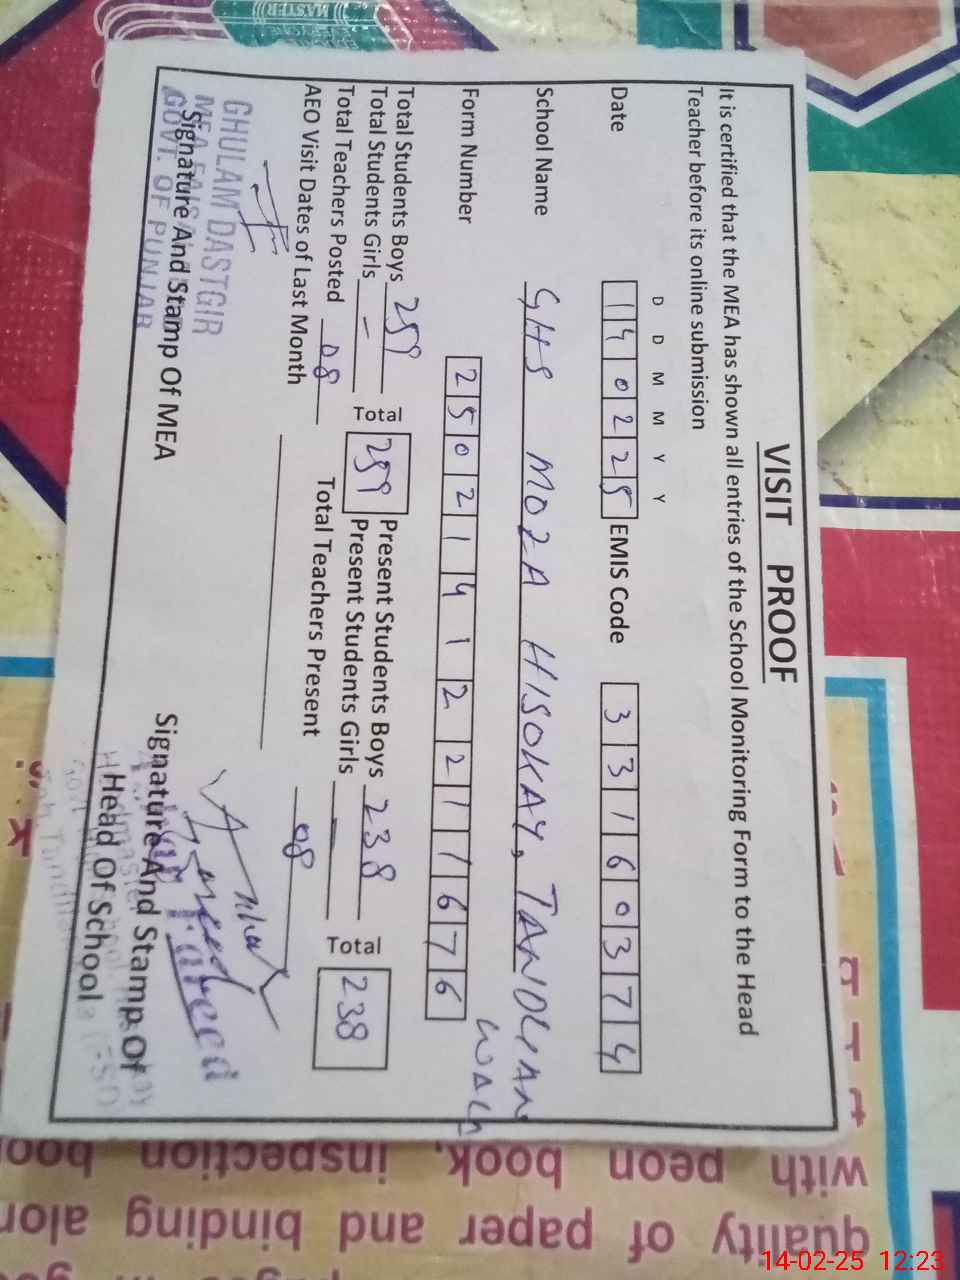 VISIT PROOF
It is certified that the MEA has shown all entries of the School Monitoring Form to the Head
Teacher before its online submission
D D M M Y Y
Date 140225 EMIS Code 33160374
School Name GHS MOZA HISOKAY, TANDLIAN
WALA
Form Number 25021412211676
Total Students Boys 259 Total 259 Present Students Boys 238 Total 238
Total Students Girls - Present Students Girls -
Total Teachers Posted 08 Total Teachers Present 08
AEO Visit Dates of Last Month
GHULAM DASTGIR
MEA
GOVT. OF PUNJAB
Signature And Stamp Of MEA
Signature And Stamp Of
Head Of School
MASTER
with peon book, inspection boo
quality of paper and binding alon
14-02-25 12:23